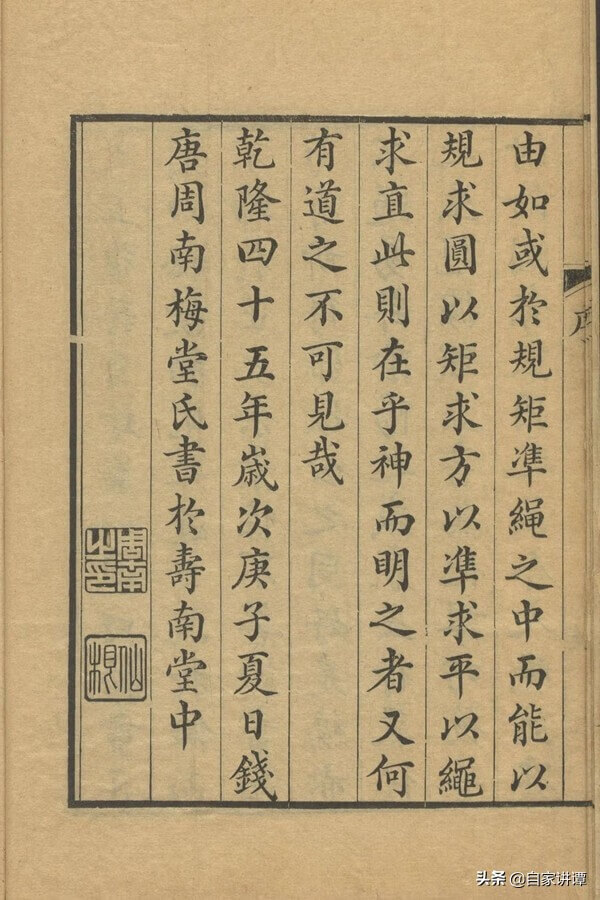 由如或於規矩準繩之中而能以
規求圓以矩求方以準求平以繩
求直此則在乎神而明之者又何
有道之不可見哉
乾隆四十五年歲次庚子夏日錢
唐周南梅堂氏書於壽南堂中
周南之印
序
头条 @自家讲谭